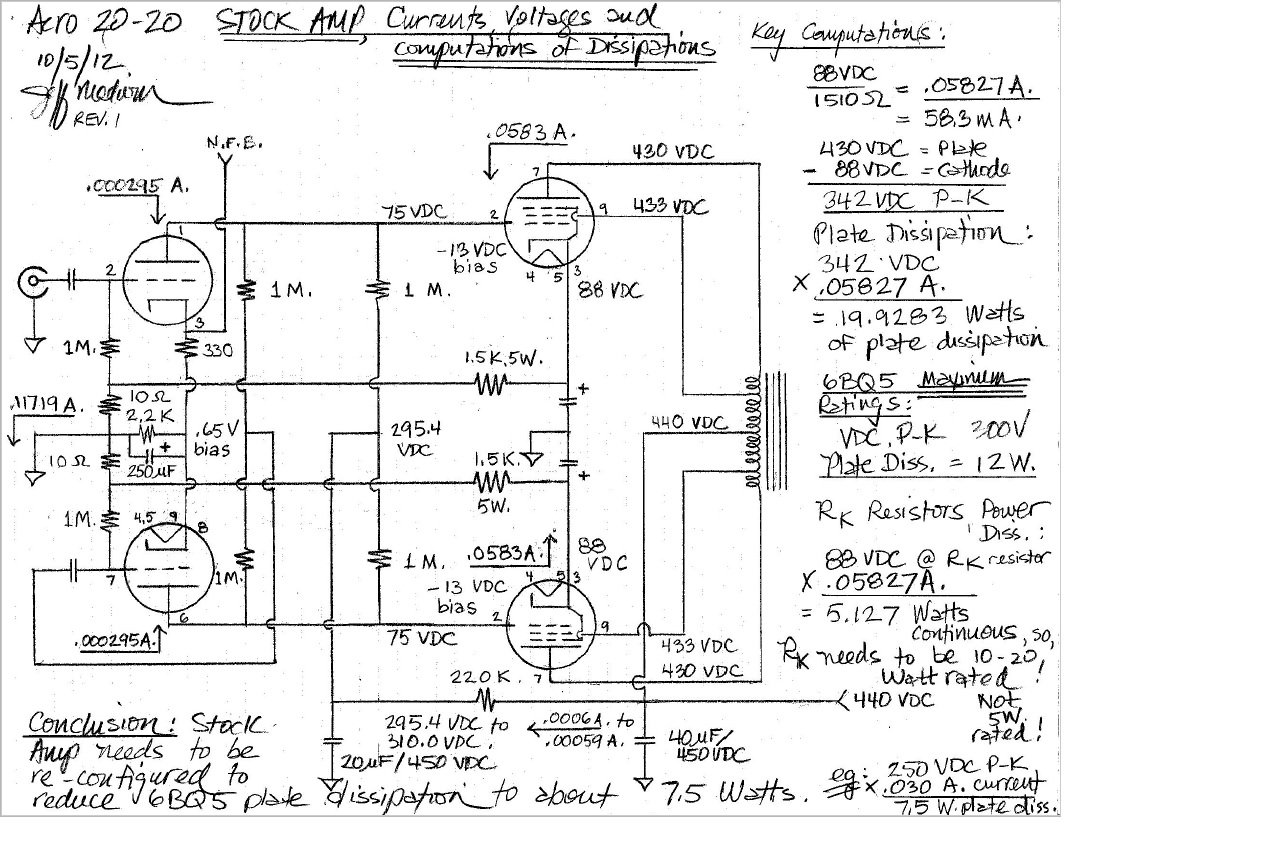 Acro 20-20 STOCK AMP, Currents, Voltages and
computations of Dissipations
10/5/12
REV. 1
Key Computations:
88VDC
1510Ω = .05827 A.
= 58.3 mA.
430 VDC = Plate
- 88VDC = Cathode
342 VDC P-K
Plate Dissipation:
342 VDC
X .05827 A.
= 19.9283 Watts
of plate dissipation
6BQ5 Maximum
Ratings:
VDC, P-K 300V
Plate Diss. = 12W.
RK Resistors Power
Diss.:
88 VDC @ RK resistor
X .05827A.
= 5.127 Watts
continuous, so,
RK needs to be 10-20,
Watt rated!
Not
5W.
rated!
eg: 250 VDC P-K
eg X .030 A. current
7.5 W. plate diss.
N.F.B.
.0583 A.
430 VDC
.000295 A.
7
1
75 VDC
2
9
433 VDC
-13 VDC
bias
2
4
5
3
1 M.
1 M.
88 VDC
3
1M.
330
1.5K, 5W.
+
10Ω
.11719 A.
2.2K
.65V
bias
295.4
VDC
440 VDC
10Ω
+
250µF
1.5K.
+
5W.
1M.
4,5
9
8
.0583A.
88
VDC
1M.
1 M.
4
5
3
7
-13 VDC
bias
6
2
9
.000295A.
75 VDC
433 VDC
220K.
7
430 VDC
440 VDC
Conclusion: Stock
295.4 VDC to
310.0 VDC.
.0006A. to
.00059A.
40µF/
450VDC
Amp needs to be
20µF/450 VDC
re-configured to
reduce 6BQ5 plate dissipation to about 7.5 Watts.